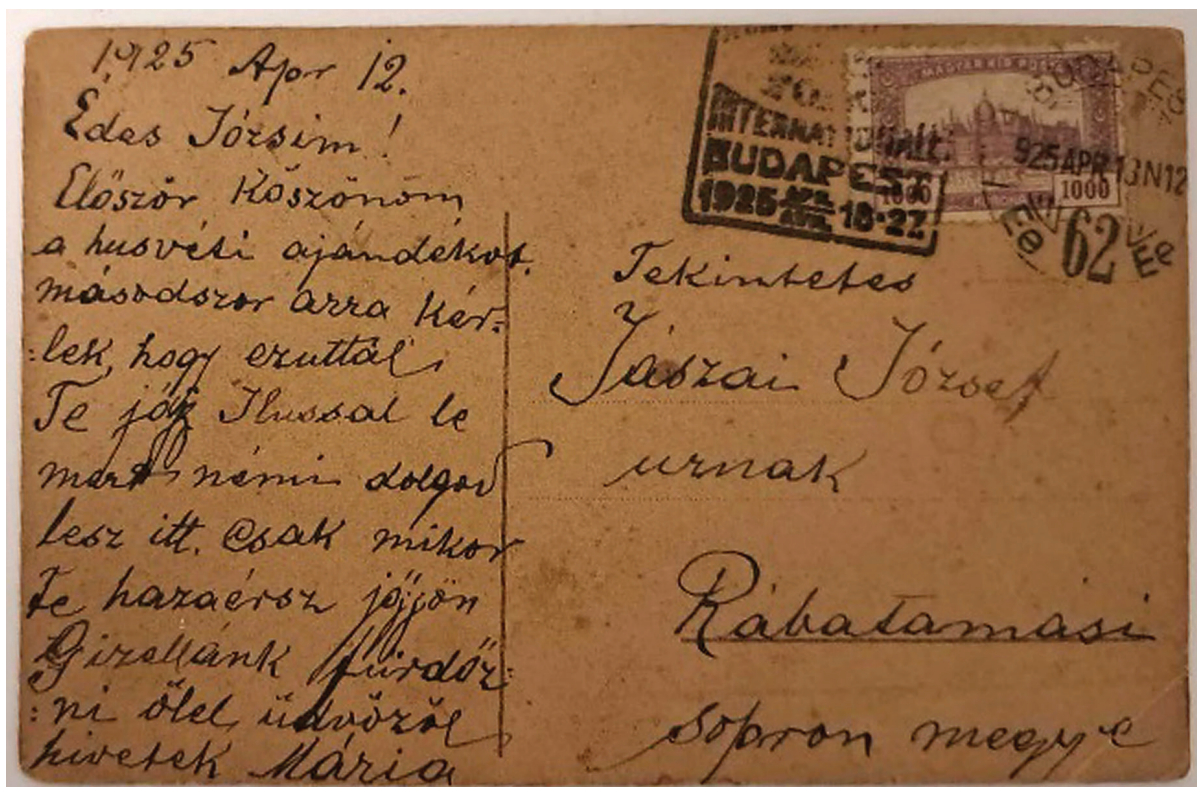 1925 Apr 12.
Édes Józsim!
Először Köszönöm
a husvéti ajándékot.
másodszor arra kér-
:lek, hogy ezuttal
Te jöjj Ilussal le
mert némi dolgod
lesz itt. Csak mikor
te hazaérsz jöjjön
Gizellánk fürdőz-
:ni ölel, üdvözöl
hivetek Mária
INTERNATIONALE
BUDAPEST
1925 18-27.
MAGYAR KIR POSTA
1000 1000
BUDAPEST
925 APR 13 N12
62
Tekintetes
Jászai József
urnak
Rábatamási
sopron megye